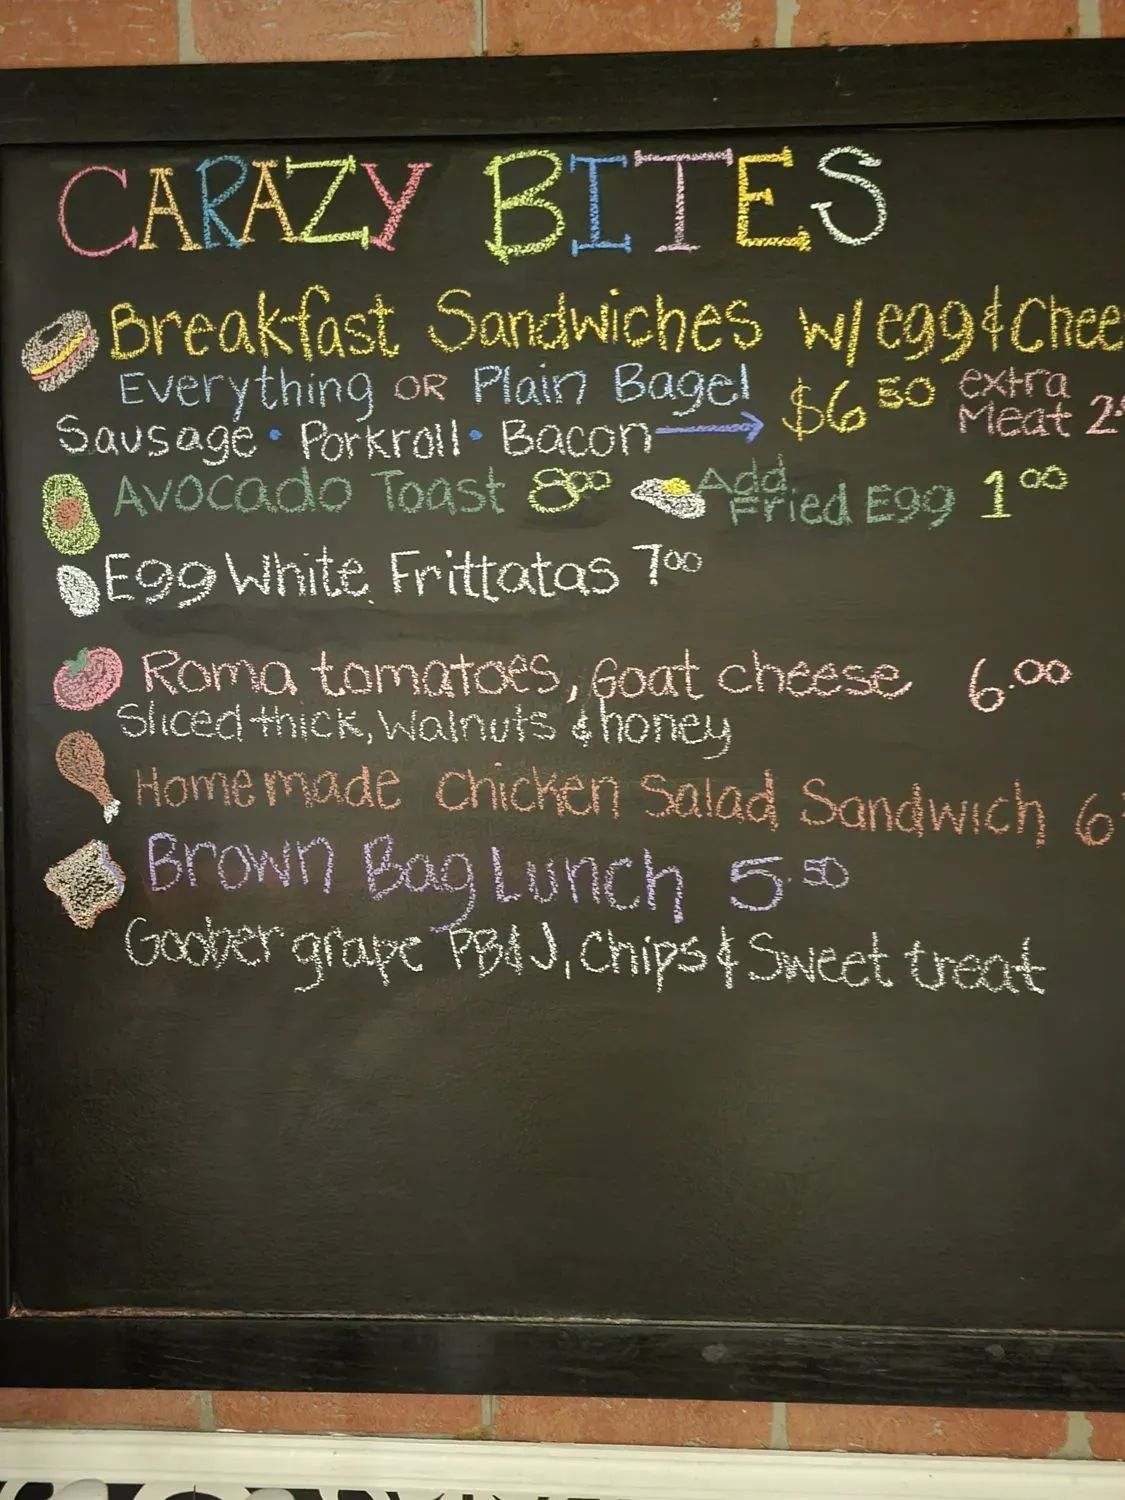 CARAZY BITES
Breakfast Sandwiches w/ egg & Chee
Everything OR Plain Bagel $6.50 extra Meat 2
Sausage • Porkroll • Bacon →
Avocado Toast 8.00 Add Fried Egg 1.00
Egg White Frittatas 7.00
Roma tomatoes, Goat cheese 6.00
Sliced thick, Walnuts & honey
Homemade chicken Salad Sandwich 6
Brown Bag Lunch 5.50
Goober grape PB&J, Chips & Sweet treat